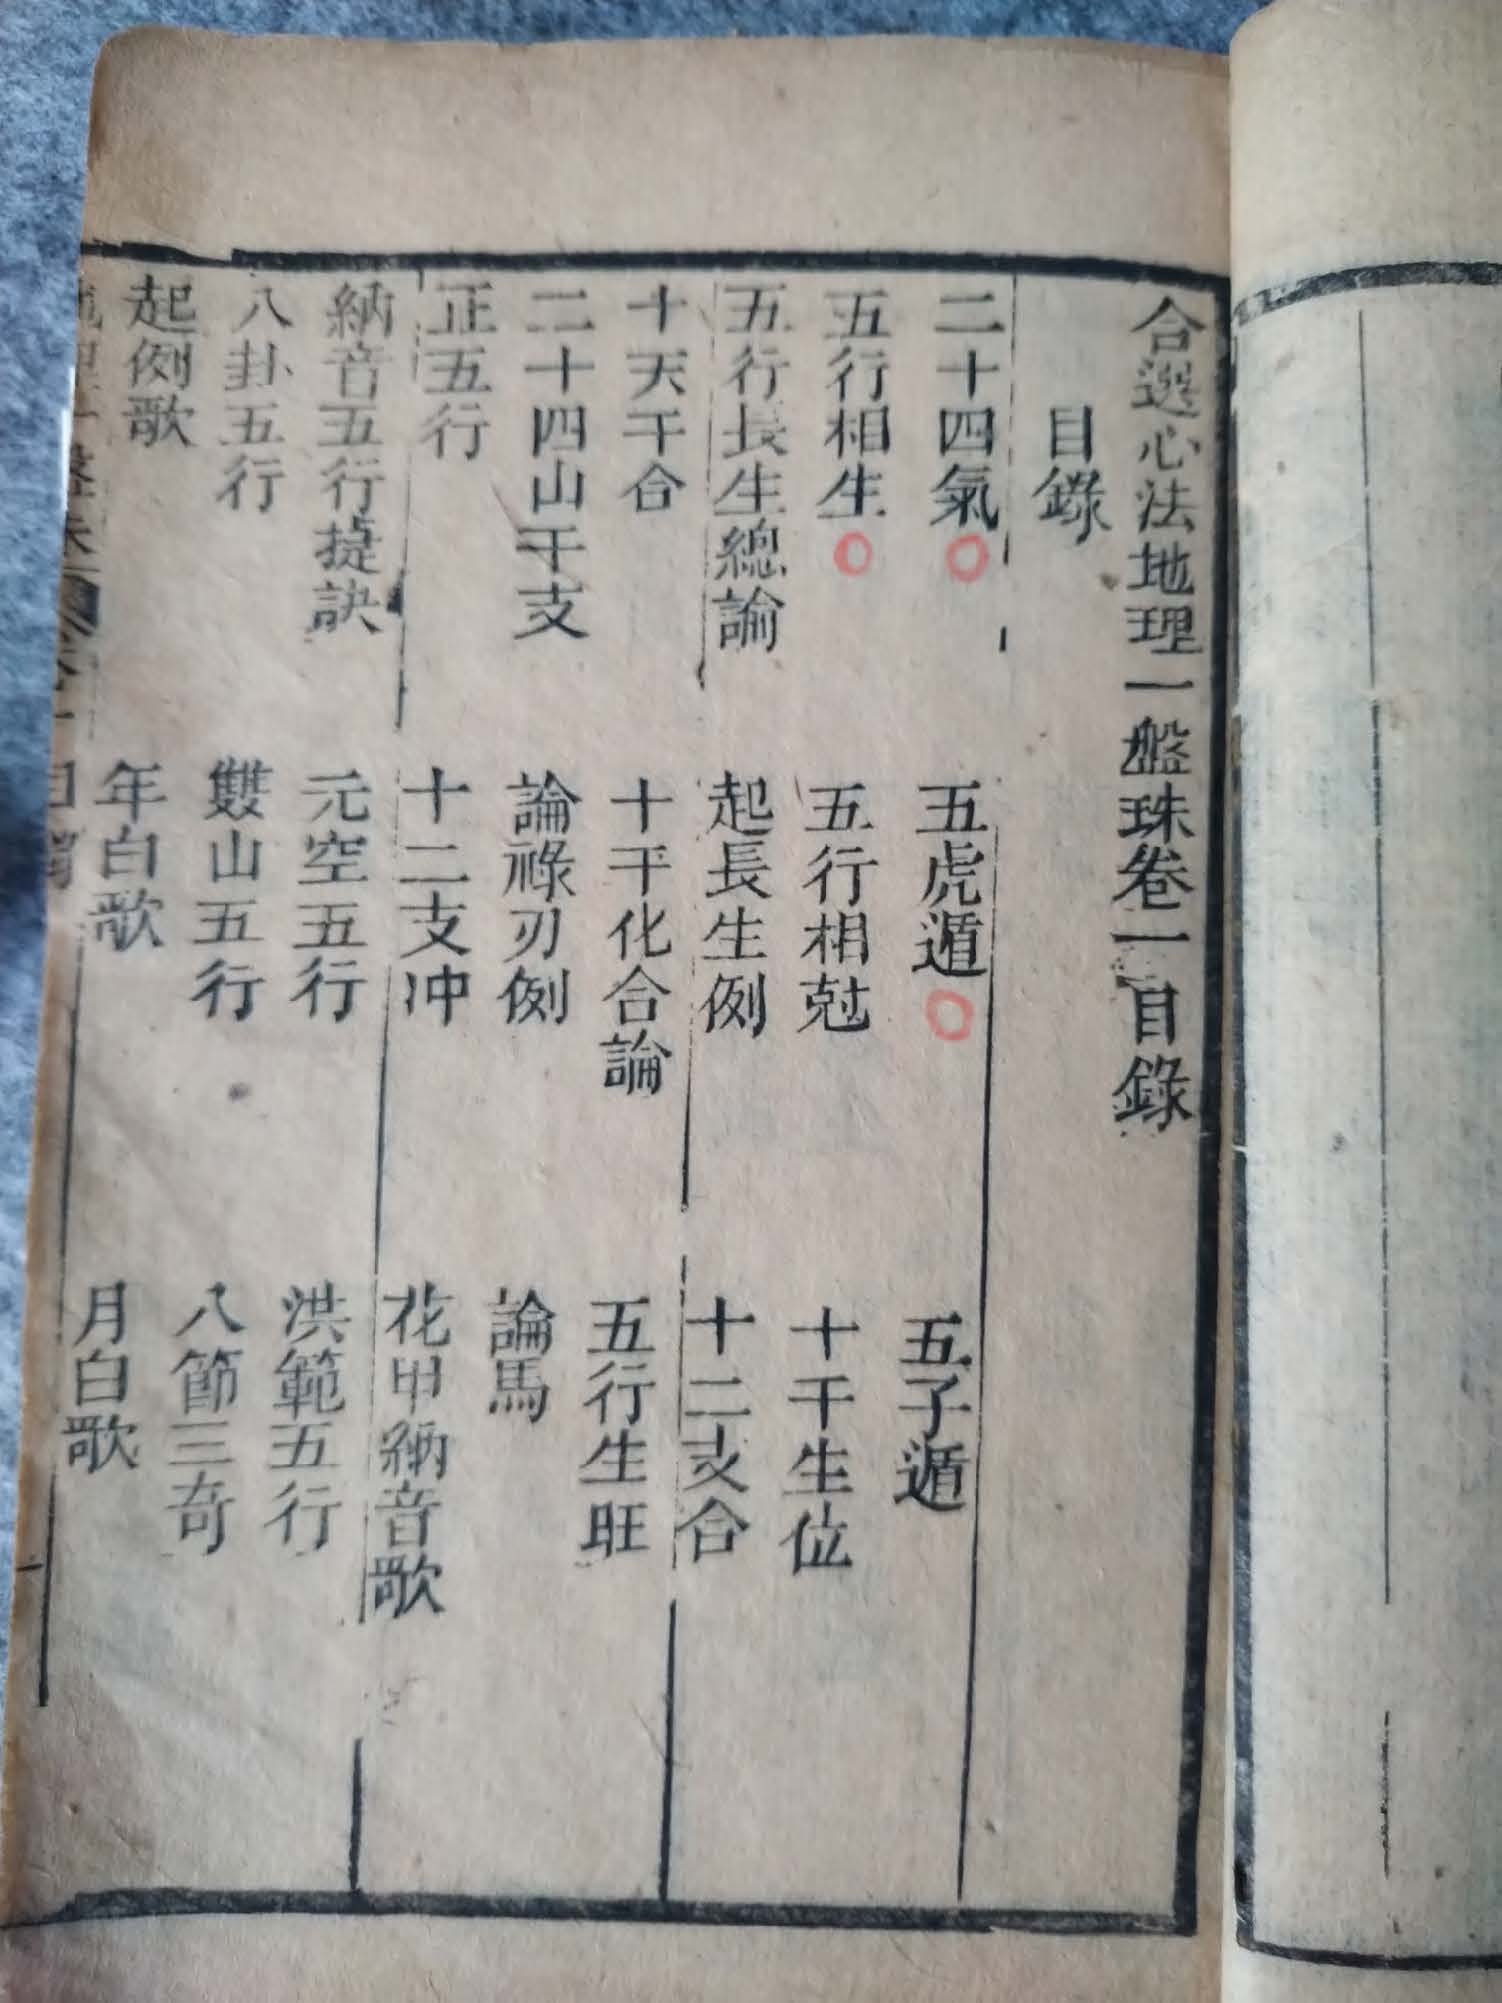 合選心法地理一盤珠卷一目錄
目錄
二十四氣 五虎遁 五子遁
五行相生 五行相尅 十干生位
五行長生總論 起長生例 十二支合
十天干合 十干化合論 五行生旺
二十四山干支 論祿刃例 論馬
正五行 十二支冲 花甲納音歌
納音五行㨗訣 元空五行 洪範五行
八卦五行 雙山五行 八節三奇
起例歌 年白歌 月白歌